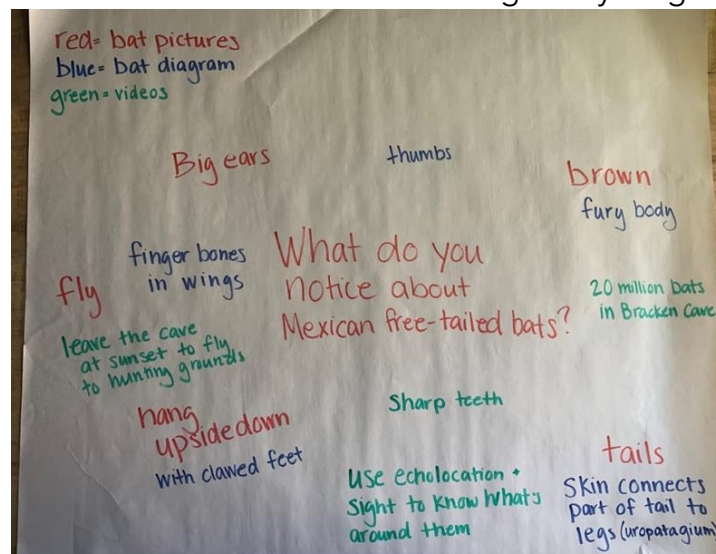 red= bat pictures
blue= bat diagram
green= videos
Big ears
thumbs
brown
fury body
finger bones
in wings
What do you
notice about
Mexican free-tailed bats?
fly
20 million bats
in Bracken Cave
leave the cave
at sunset to fly
to hunting grounds
hang
upside down
with clawed feet
Sharp teeth
use echolocation +
sight to know what's
around them
tails
Skin connects
part of tail to
legs (uropatagium)